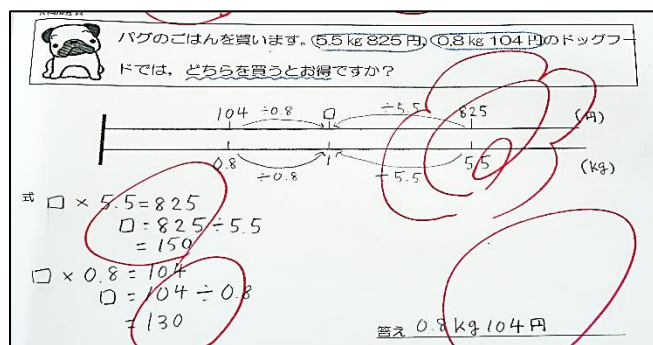 パグのごはんを買います。5.5 kg 825円, 0.8 kg 104円のドッグフー
ドでは，どちらを買うとお得ですか？
104 ÷0.8 □ ÷5.5 825 (円)
0.8 ÷0.8 1 ÷5.5 5.5 (kg)
式 □ × 5.5 = 825
□ = 825 ÷ 5.5
= 150
□ × 0.8 = 104
□ = 104 ÷ 0.8
= 130
答え 0.8 kg 104円